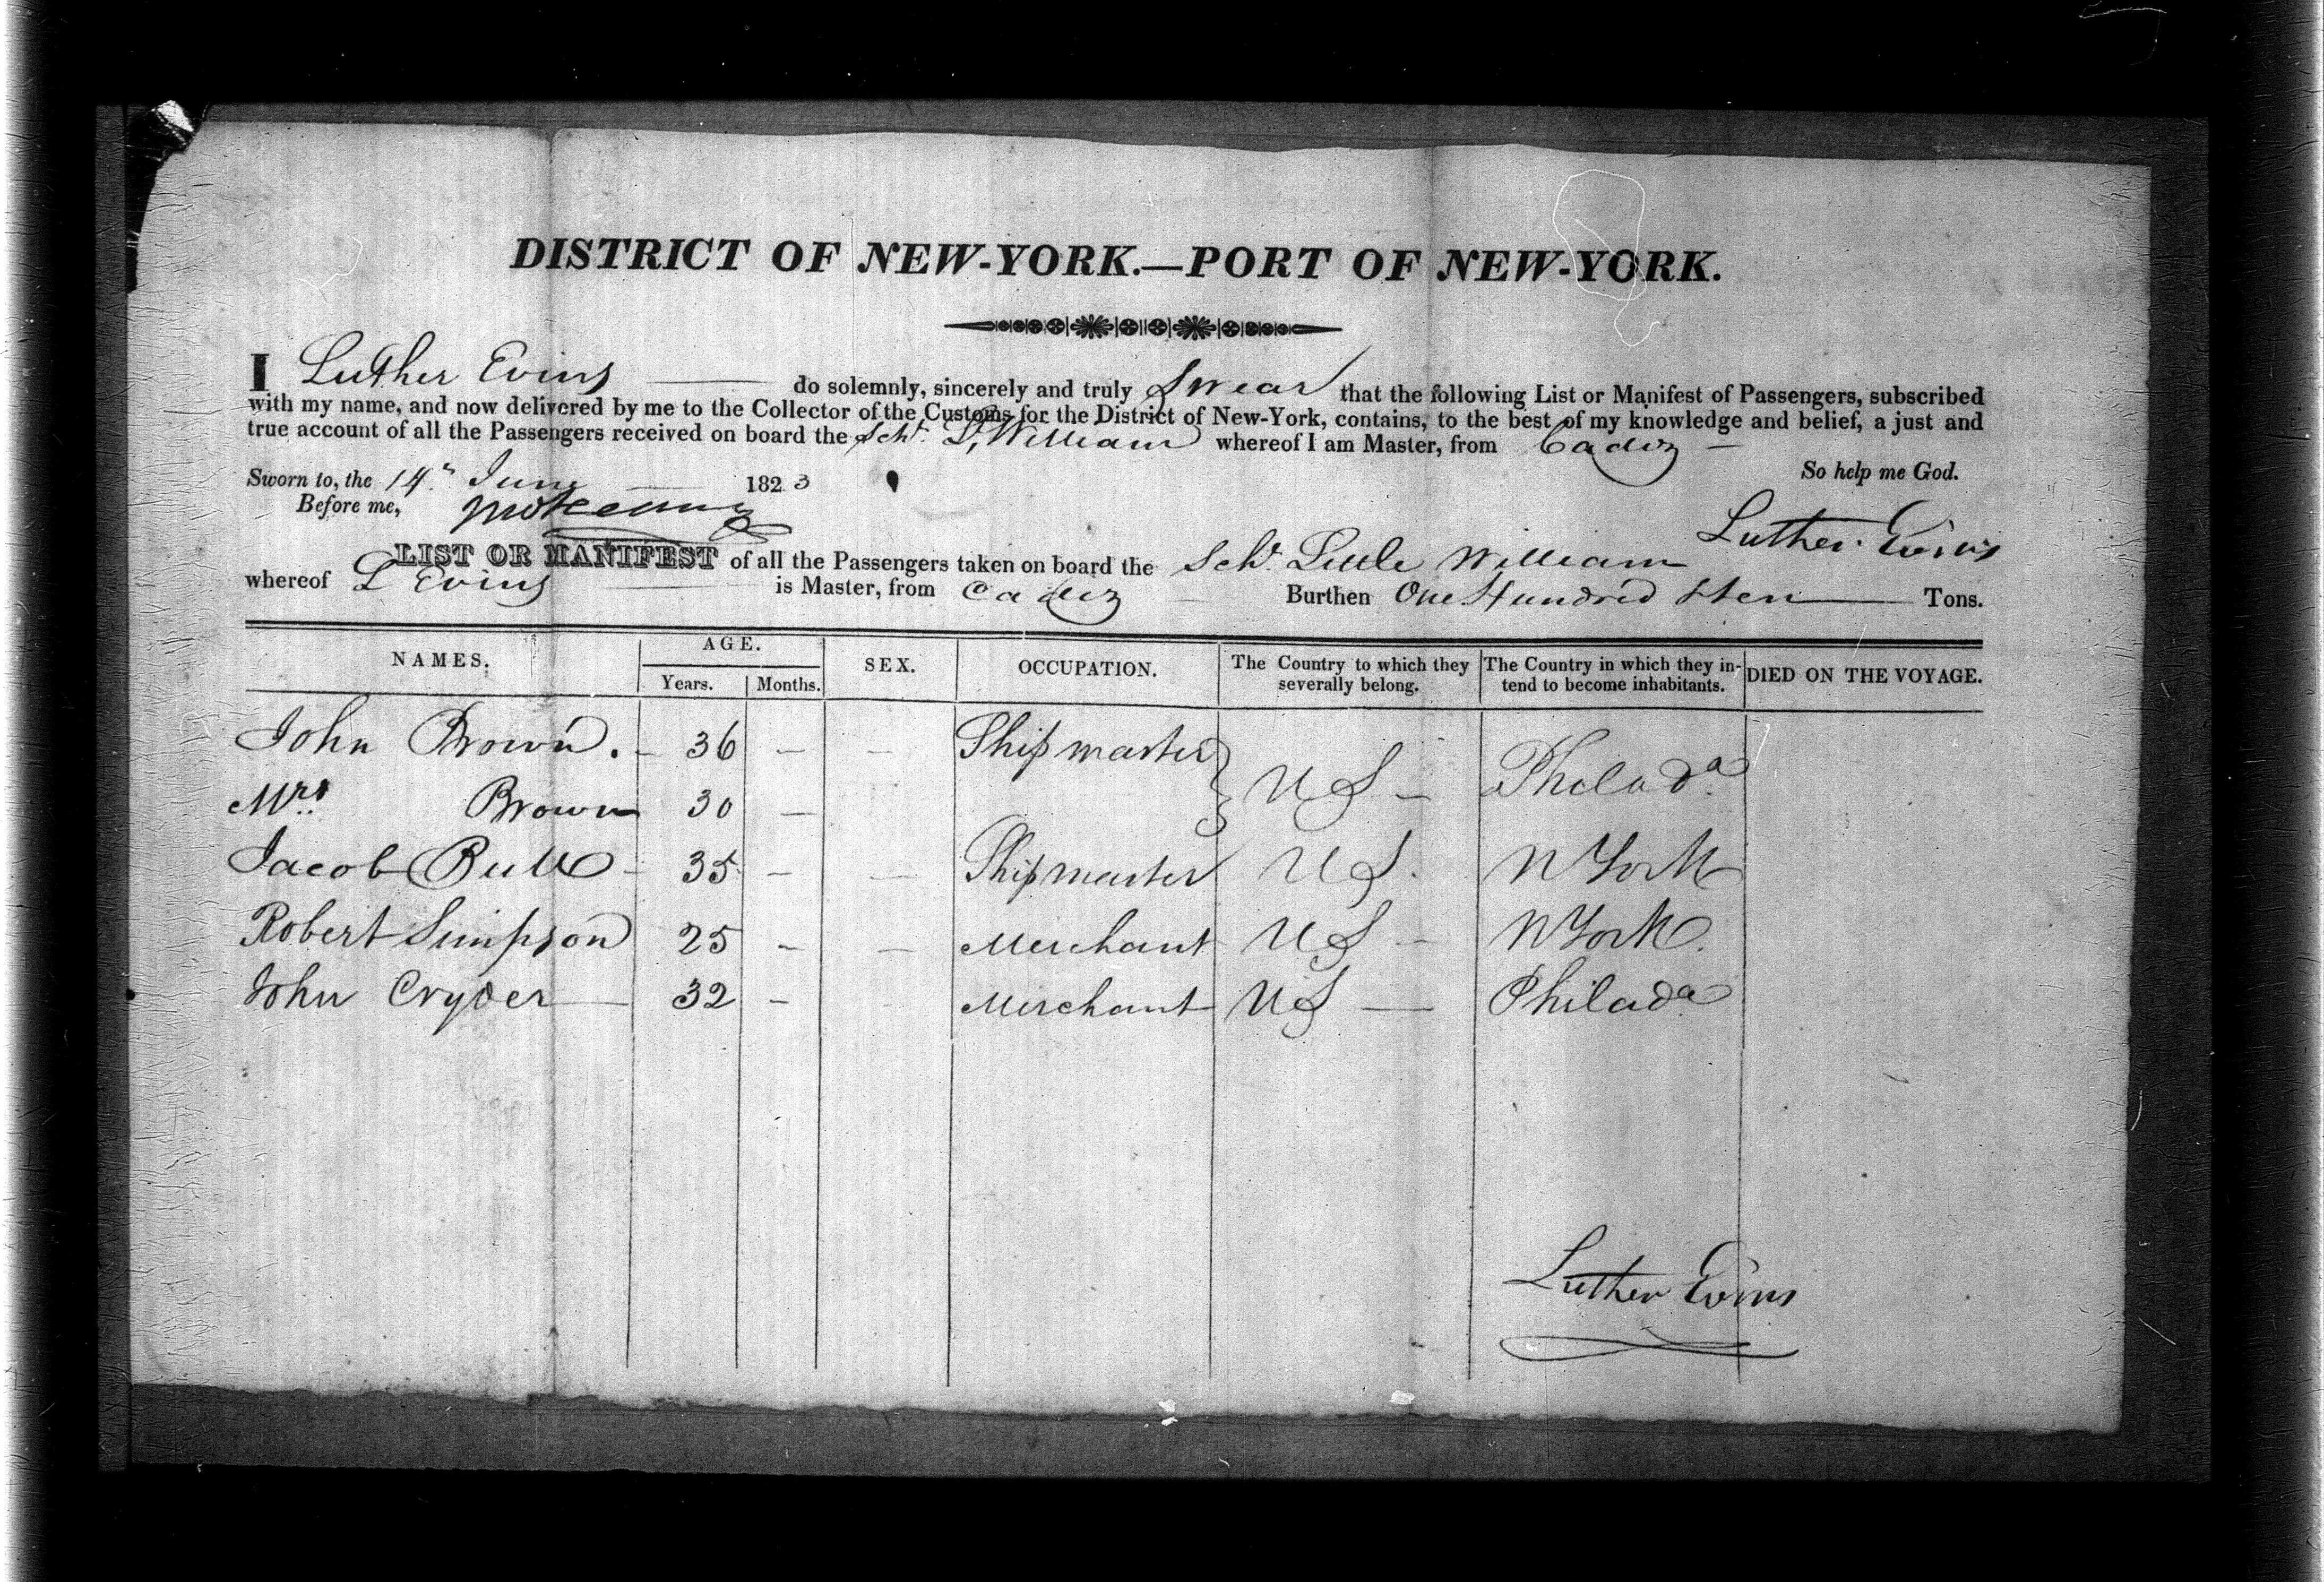 DISTRICT OF NEW-YORK.—PORT OF NEW-YORK.
I Luther Evins do solemnly, sincerely and truly Swear that the following List or Manifest of Passengers, subscribed
with my name, and now delivered by me to the Collector of the Customs for the District of New-York, contains, to the best of my knowledge and belief, a just and
true account of all the Passengers received on board the Schr. L, William whereof I am Master, from Cadiz —
Sworn to, the 14th June 1823 So help me God.
Before me,
Luther Evins
LIST OR MANIFEST of all the Passengers taken on board the Schr. Little William
whereof L Evins is Master, from Cadiz Burthen One Hundred & ten Tons.
NAMES. AGE. SEX. OCCUPATION. The Country to which they severally belong. The Country in which they intend to become inhabitants. DIED ON THE VOYAGE.
Years. Months.
John Brown. - 36 — — Ship master } U S — Philada
Mrs. Brown 30 —
Jacob Bull - 35 — — Ship master U S. N York
Robert Simpson 25 — — Merchant U S — N York.
John Cryder — 32 — Merchant U S — Philada
Luther Evins